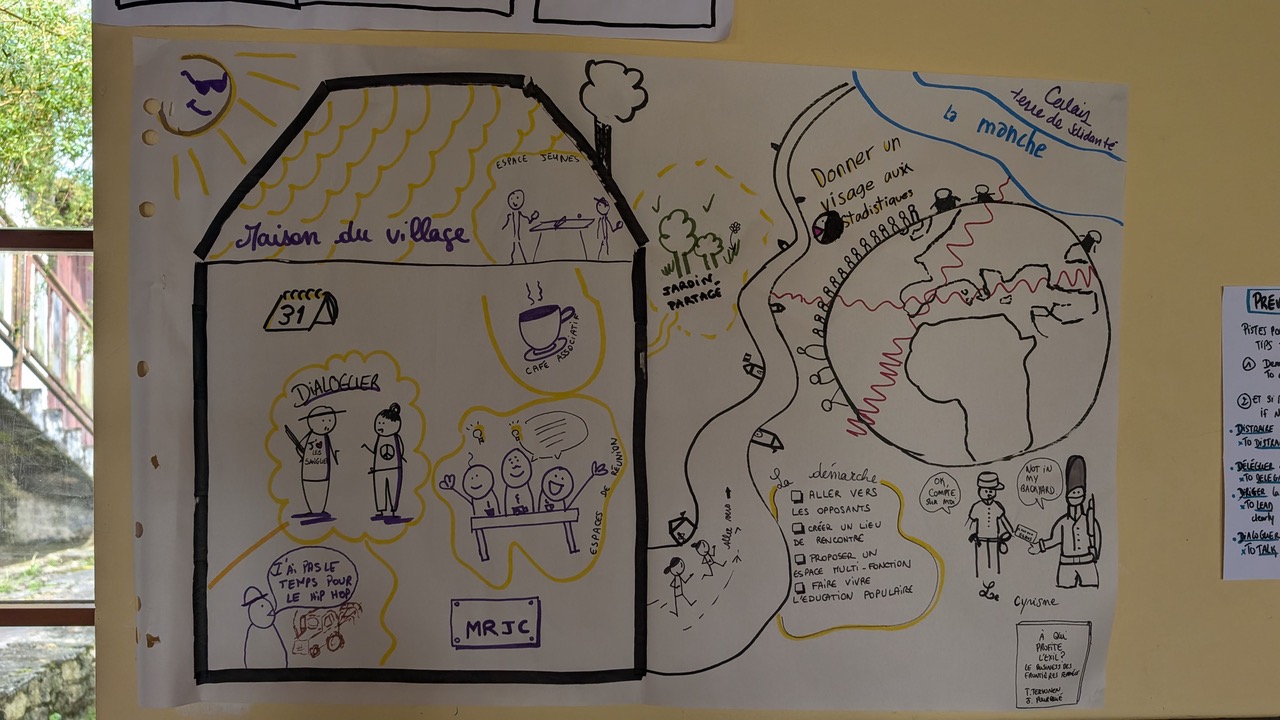 Maison du village
ESPACE JEUNES
31
CAFÉ ASSOCIATIF
DIALOGUER
J'
LES
ESPACES DE RÉUNION
J'AI PAS LE
TEMPS POUR
LE HIP HOP
MRJC
JARDIN
PARTAGÉ
Donner un
visage aux
statistiques
La manche
Calais
terre de solidarité
La démarche
ALLER VERS
LES OPPOSANTS
CRÉER UN LIEU
DE RENCONTRE
PROPOSER UN
ESPACE MULTI-FONCTION
FAIRE VIVRE
L'EDUCATION POPULAIRE
OK,
COMPTE
SUR MOI
NOT IN
MY
BACKYARD
Le
cynisme
À QUI
PROFITE
L'EXIL?
LE BUSINESS DES
FRONTIÈRES FERMÉES
PREV
PISTES PO
TIPS
DISTRAIRE
TO DISTRA
DÉLÉGUER
TO DELEG
DIRIGER
TO LEAD
clearly
DIALOGUER
TO TALK